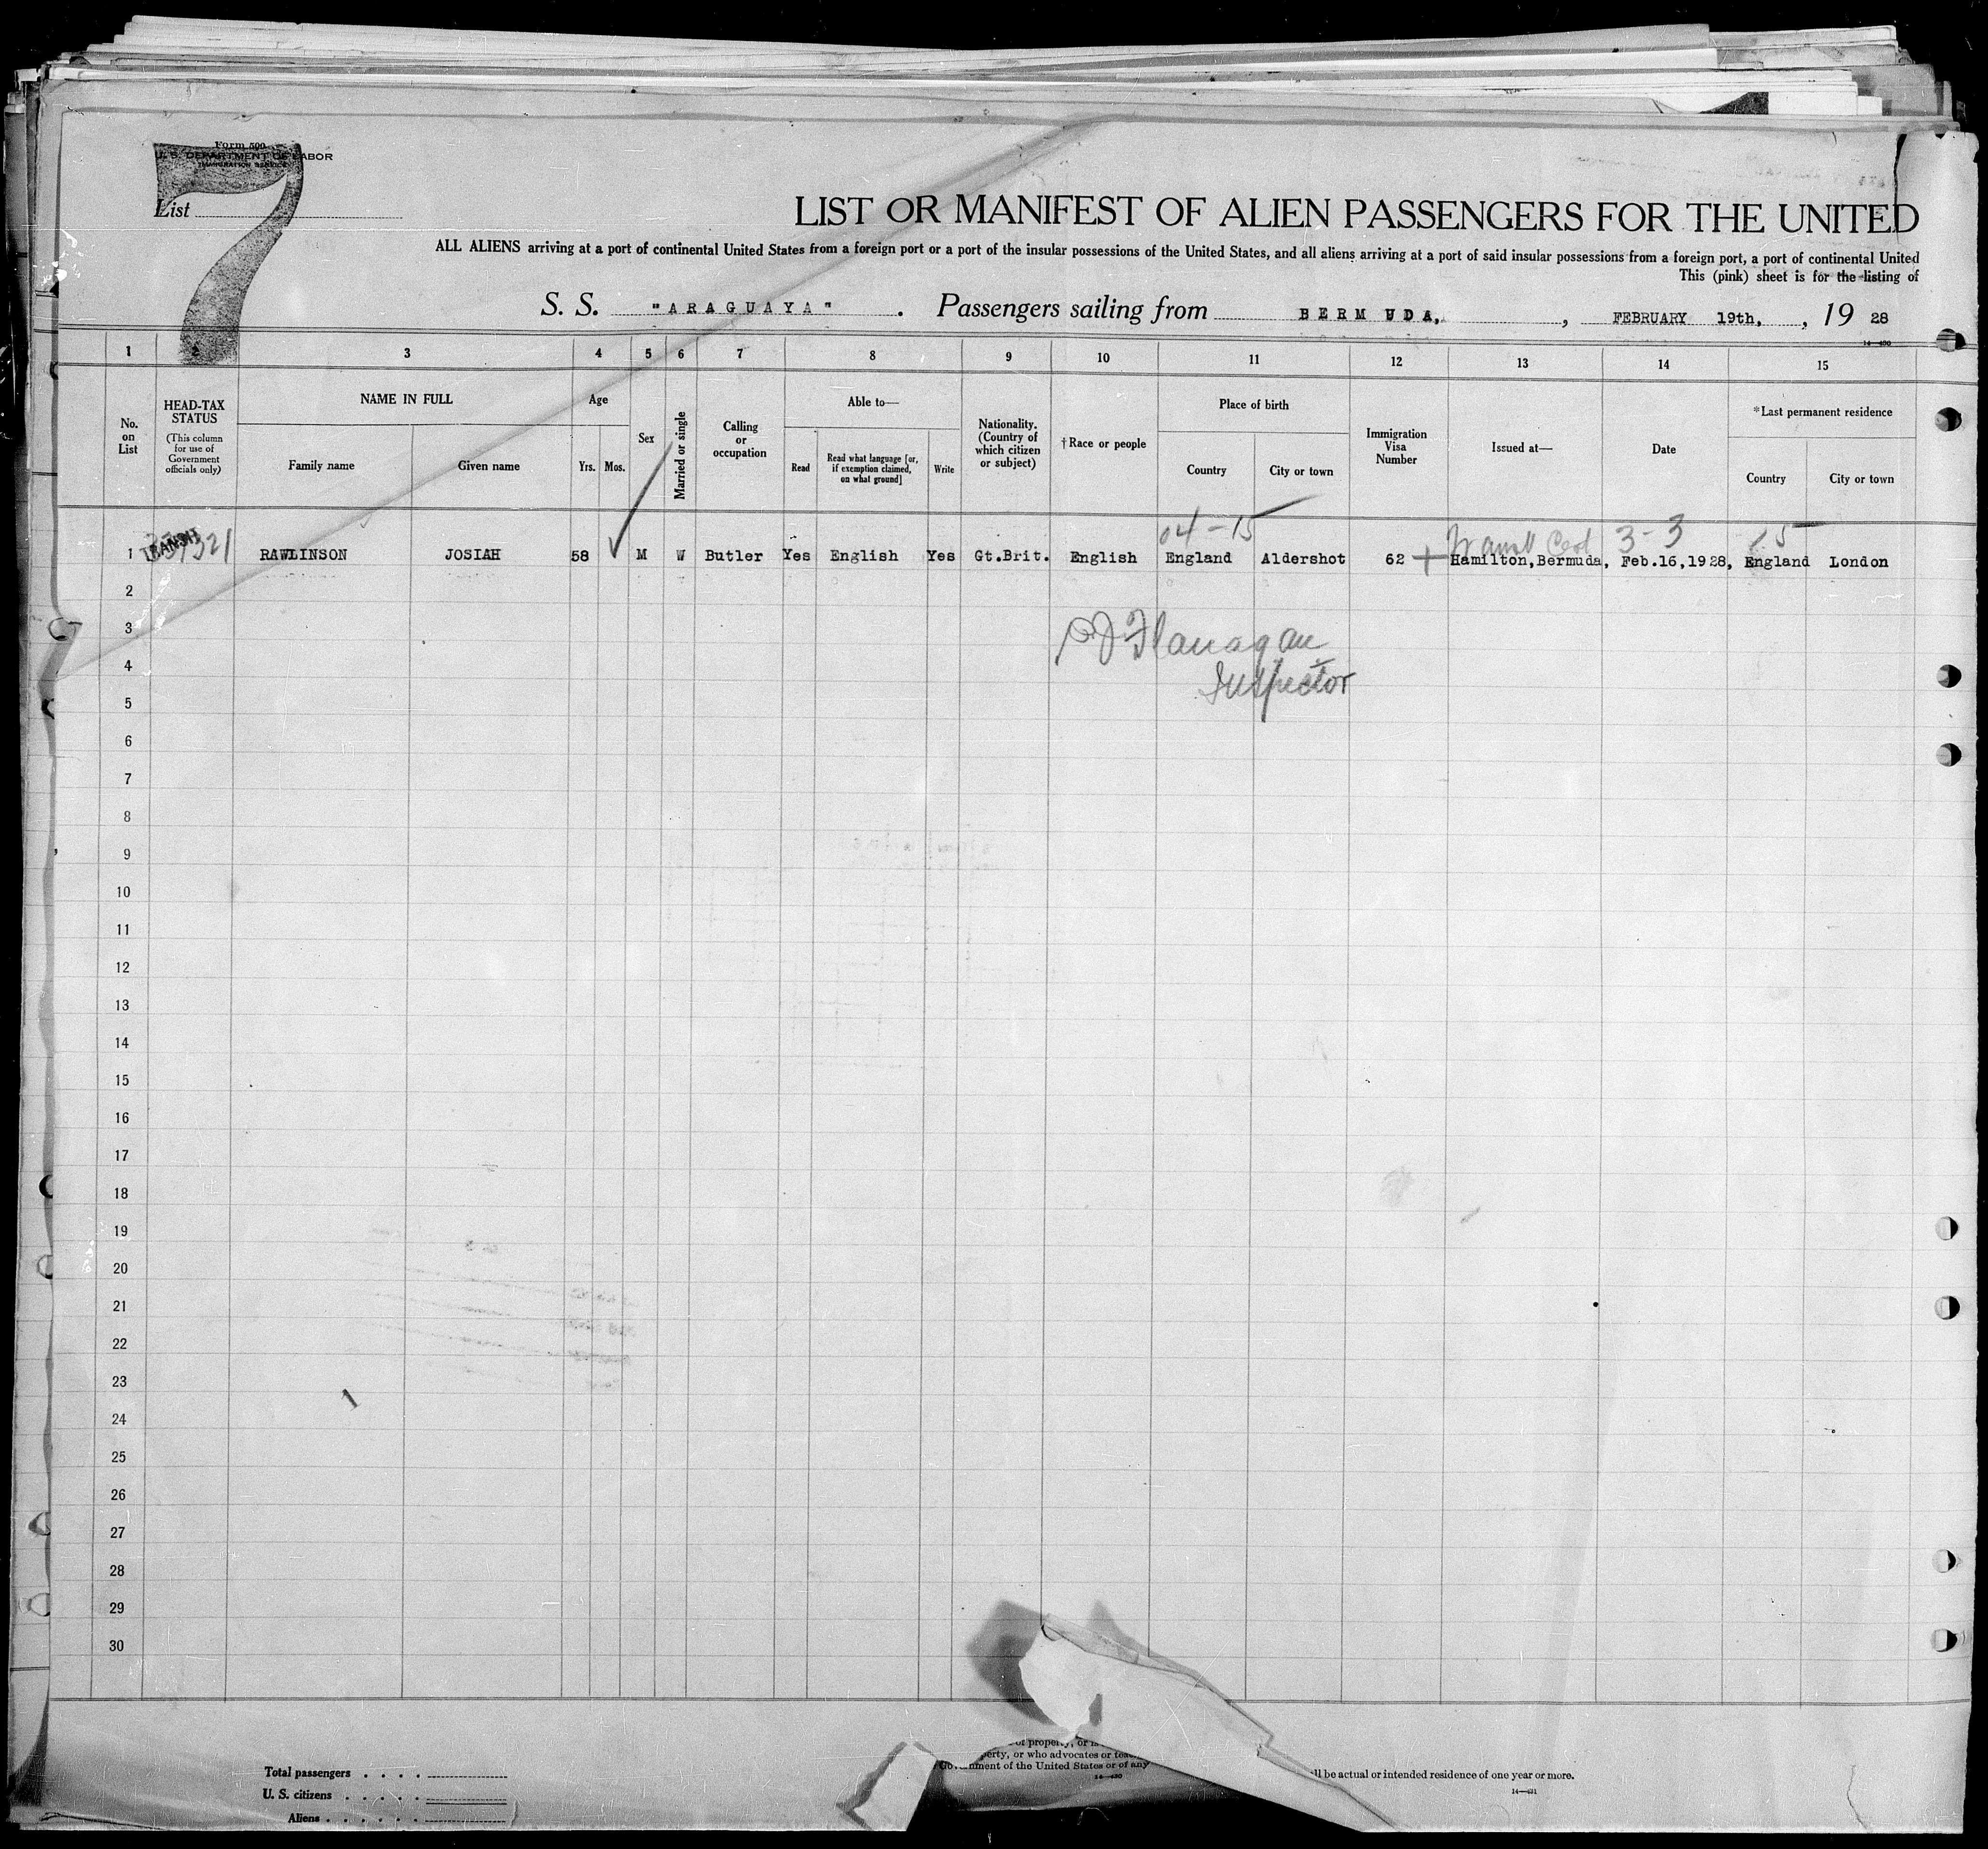 Form 500
U. S. DEPARTMENT OF LABOR
IMMIGRATION SERVICE
7
List
LIST OR MANIFEST OF ALIEN PASSENGERS FOR THE UNITED
ALL ALIENS arriving at a port of continental United States from a foreign port or a port of the insular possessions of the United States, and all aliens arriving at a port of said insular possessions from a foreign port, a port of continental United
This (pink) sheet is for the listing of
S. S. "ARAGUAYA" . Passengers sailing from BERMUDA, , FEBRUARY 19th, , 19 28
14—430
1 2 3 4 5 6 7 8 9 10 11 12 13 14 15
No. on List
HEAD-TAX STATUS
(This column for use of Government officials only)
NAME IN FULL
Family name
Given name
Age
Yrs.
Mos.
Sex
Married or single
Calling or occupation
Able to—
Read
Read what language [or, if exemption claimed, on what ground]
Write
Nationality. (Country of which citizen or subject)
†Race or people
Place of birth
Country
City or town
Immigration Visa Number
Issued at—
Date
*Last permanent residence
Country
City or town
04-15
3-3
1 TRANSIT RAWLINSON JOSIAH 58 M W Butler Yes English Yes Gt.Brit. English England Aldershot 62 Hamilton,Bermuda, Feb.16,1928, England London
2
3
Flanagan
4
Inspector
5
6
7
8
9
10
11
12
13
14
15
16
17
18
19
20
21
22
23
24
25
26
27
28
29
30
Total passengers
U. S. citizens
Aliens
of property, or
perty, or who advocates or
nment of the United States or of any
14—430
ll be actual or intended residence of one year or more.
14—431